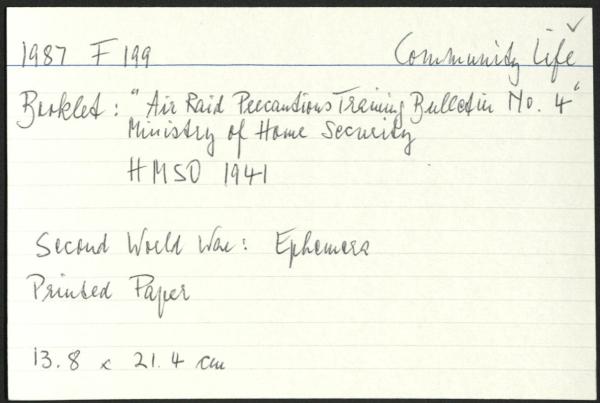 1987 F 199 Community Life
Booklet: "Air Raid Precautions Training Bulletin No. 4"
Ministry of Home Security
HMSO 1941
Second World War: Ephemera
Printed Paper
13.8 x 21.4 cm